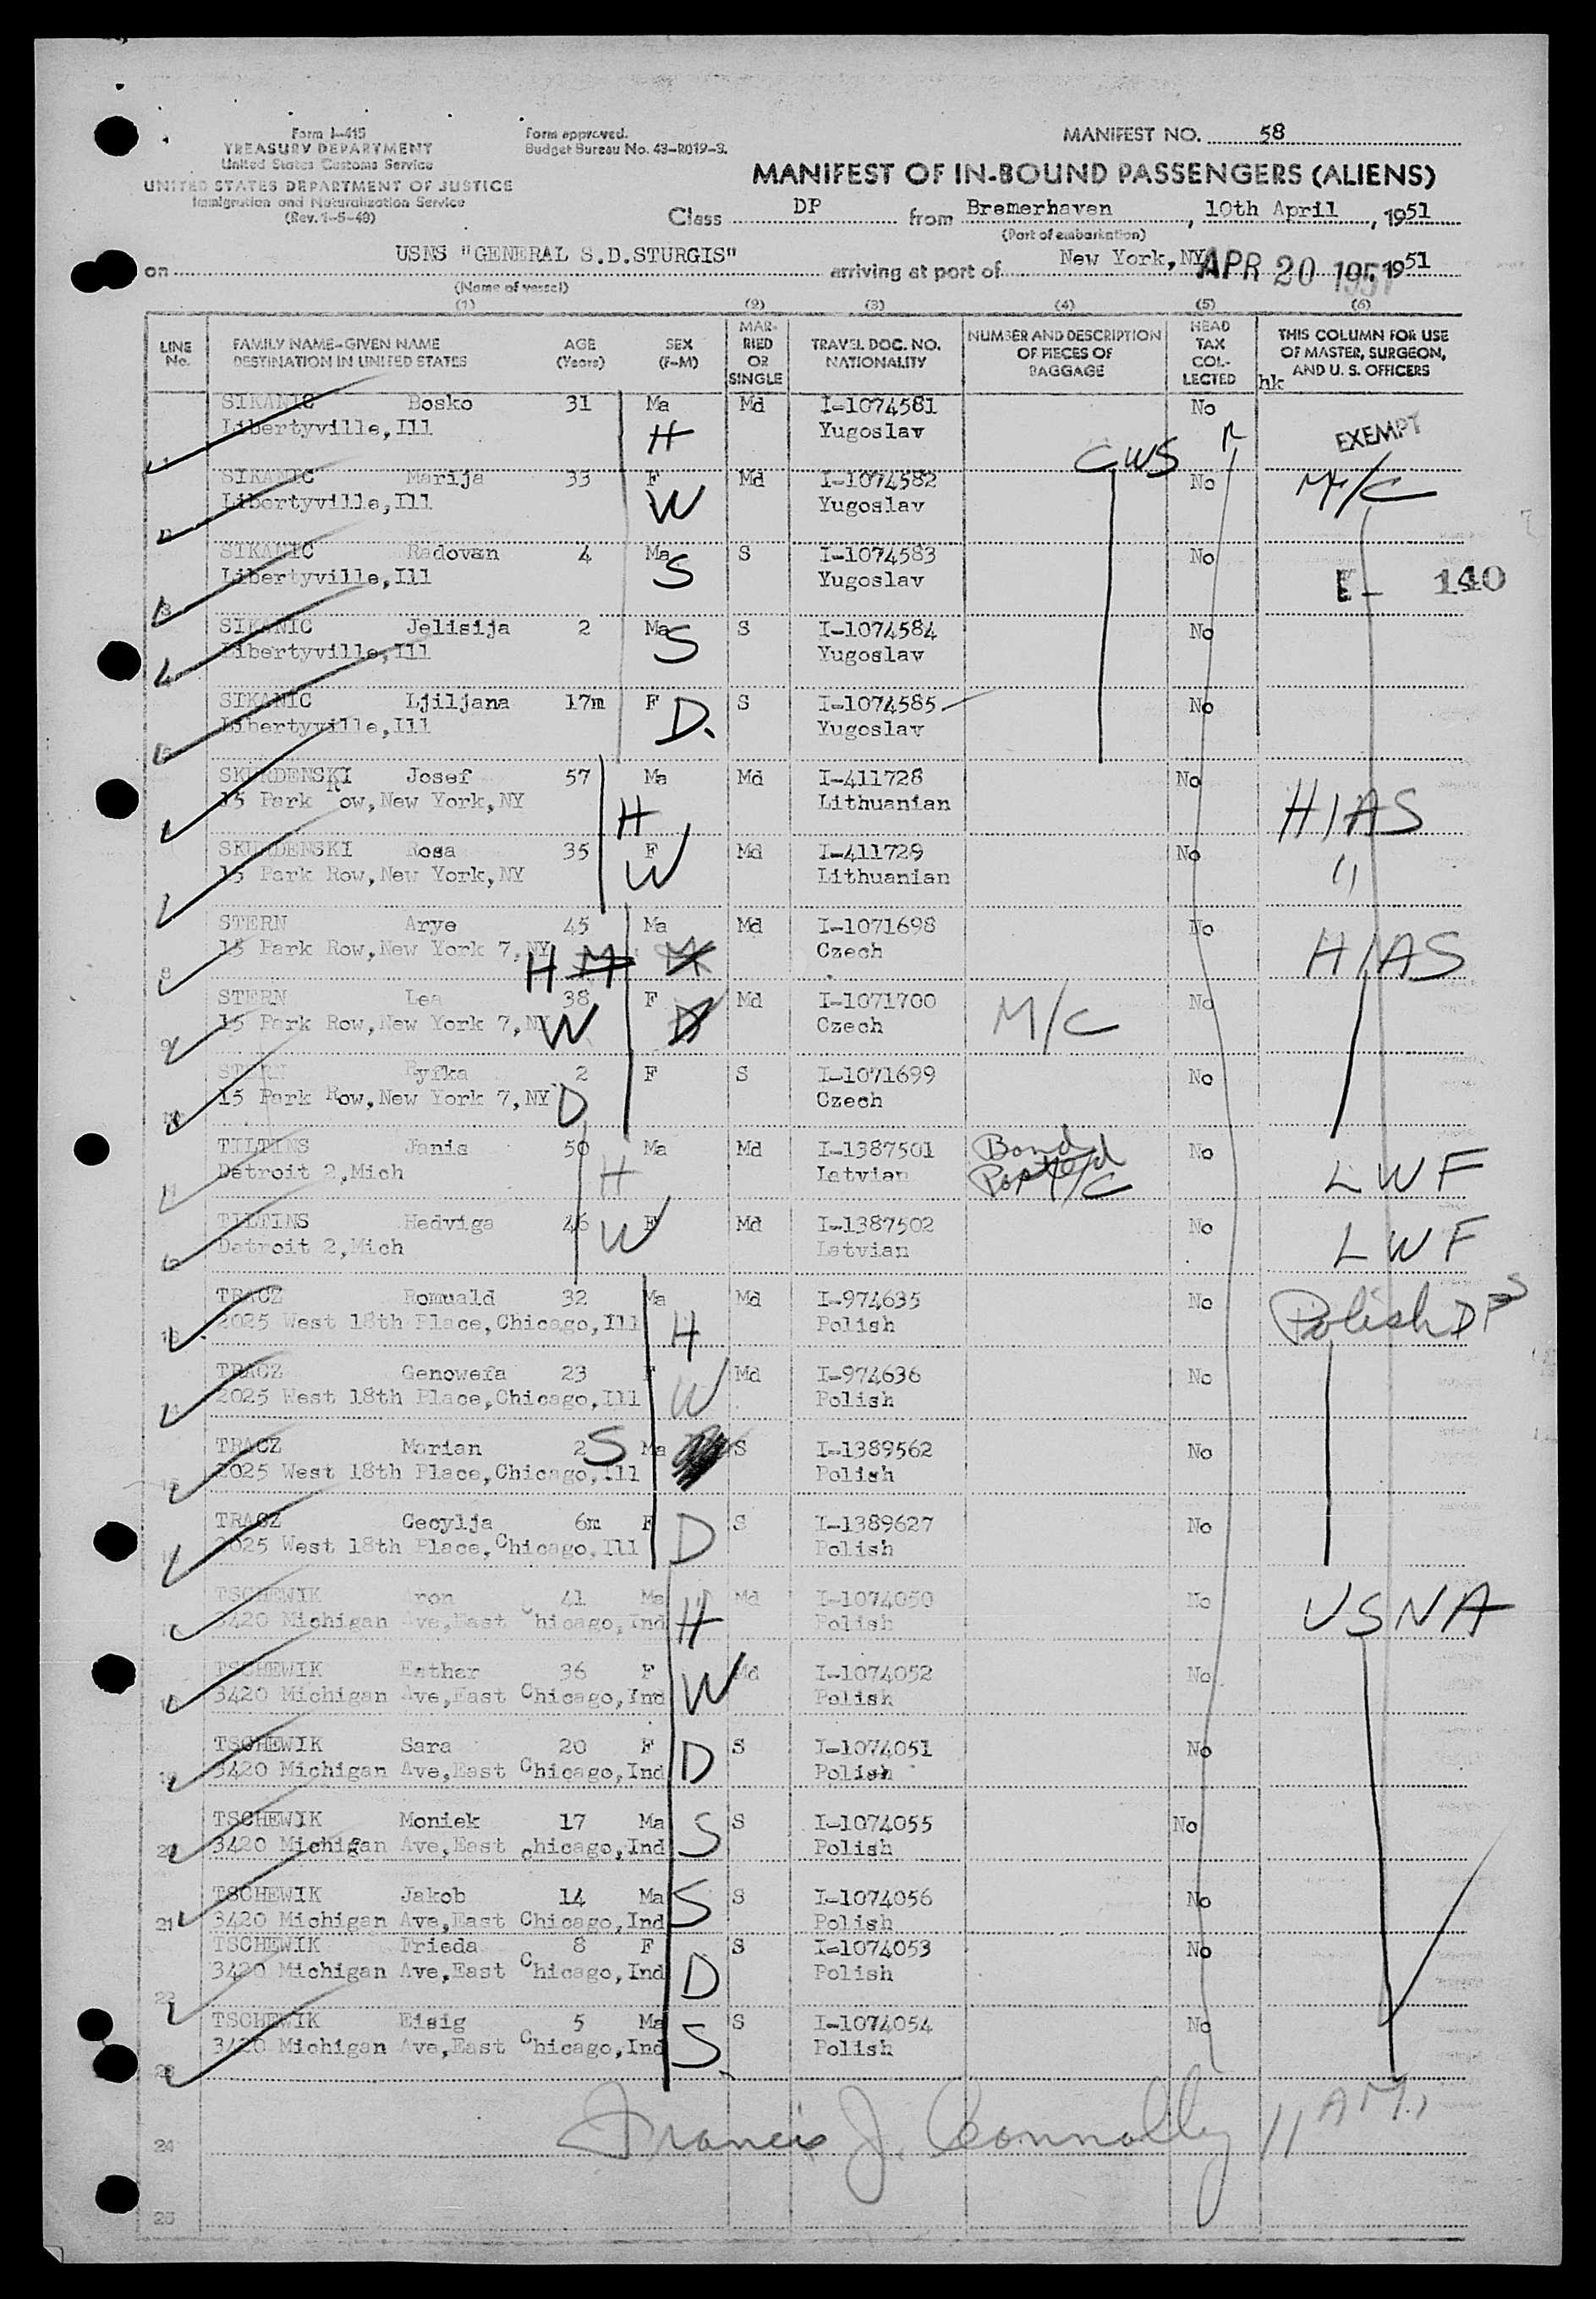 Form I-415
TREASURY DEPARTMENT
United States Customs Service
UNITED STATES DEPARTMENT OF JUSTICE
Immigration and Naturalization Service
(Rev. 1-5-49)
Form approved.
Budget Bureau No. 43-R019-3.
MANIFEST NO. 58
MANIFEST OF IN-BOUND PASSENGERS (ALIENS)
Class DP from Bremerhaven, 10th April, 1951
(Port of embarkation)
on USNS "GENERAL S.D.STURGIS" arriving at port of New York, NY APR 20 1951, 1951
(Name of vessel)
(1) (2) (3) (4) (5) (6)
LINE No. FAMILY NAME-GIVEN NAME DESTINATION IN UNITED STATES AGE (Years) SEX (F-M) MARRIED OR SINGLE TRAVEL DOC. NO. NATIONALITY NUMBER AND DESCRIPTION OF PIECES OF BAGGAGE HEAD TAX COLLECTED THIS COLUMN FOR USE OF MASTER, SURGEON, AND U. S. OFFICERS
hk
SIKANIC Bosko 31 Ma Md I-1074581 No
Libertyville,Ill H Yugoslav CWS EXEMPT
SIKANIC Marija 33 F Md I-1074582 No M/C
Libertyville,Ill W Yugoslav
SIKANIC Radovan 4 Ma S I-1074583 No
3 Libertyville,Ill S Yugoslav 140
SIKANIC Jelisija 2 Ma S I-1074584 No
4 Libertyville,Ill S Yugoslav
SIKANIC Ljiljana 17m F S I-1074585 No
5 Libertyville,Ill D. Yugoslav
SKURDENSKI Josef 57 Ma Md I-411728 No
15 Park Row,New York,NY H Lithuanian HIAS
SKURDENSKI Rosa 35 F Md I-411729 No
15 Park Row,New York,NY W Lithuanian "
STERN Arye 45 Ma Md I-1071698 No
8 15 Park Row,New York 7,NY H Czech HIAS
STERN Lea 38 F Md I-1071700 No
9 15 Park Row,New York 7,NY W Czech M/C
STERN Ryfka 2 F S I-1071699 No
10 15 Park Row,New York 7,NY D Czech
TILTINS Janis 50 Ma Md I-1387501 Bond No
11 Detroit 2,Mich H Latvian Posted M/C LWF
TILTINS Hedviga 46 F Md I-1387502 No
Detroit 2,Mich W Latvian LWF
TRACZ Romuald 32 Ma Md I-974635 No Polish DPs
13 2025 West 18th Place,Chicago,Ill H Polish
TRACZ Genowefa 23 F Md I-974636 No
14 2025 West 18th Place,Chicago,Ill W Polish
TRACZ Marian 2 S Ma S I-1389562 No
15 2025 West 18th Place,Chicago,Ill Polish
TRACZ Cecylja 6m F S I-1389627 No
2025 West 18th Place,Chicago,Ill D Polish
TSCHEWIK Aron 41 Ma Md I-1074050 No USNA
3420 Michigan Ave,East Chicago,Ind H Polish
TSCHEWIK Esther 36 F Md I-1074052 No
3420 Michigan Ave,East Chicago,Ind W Polish
TSCHEWIK Sara 20 F S I-1074051 No
19 3420 Michigan Ave,East Chicago,Ind D Polish
TSCHEWIK Moniek 17 Ma S I-1074055 No
20 3420 Michigan Ave,East Chicago,Ind S Polish
TSCHEWIK Jakob 14 Ma S I-1074056 No
21 3420 Michigan Ave,East Chicago,Ind S Polish
TSCHEWIK Frieda 8 F S I-1074053 No
22 3420 Michigan Ave,East Chicago,Ind D Polish
TSCHEWIK Eisig 5 Ma S I-1074054 No
23 3420 Michigan Ave,East Chicago,Ind S Polish
Francis J. Connolly 11 AM.
24
25